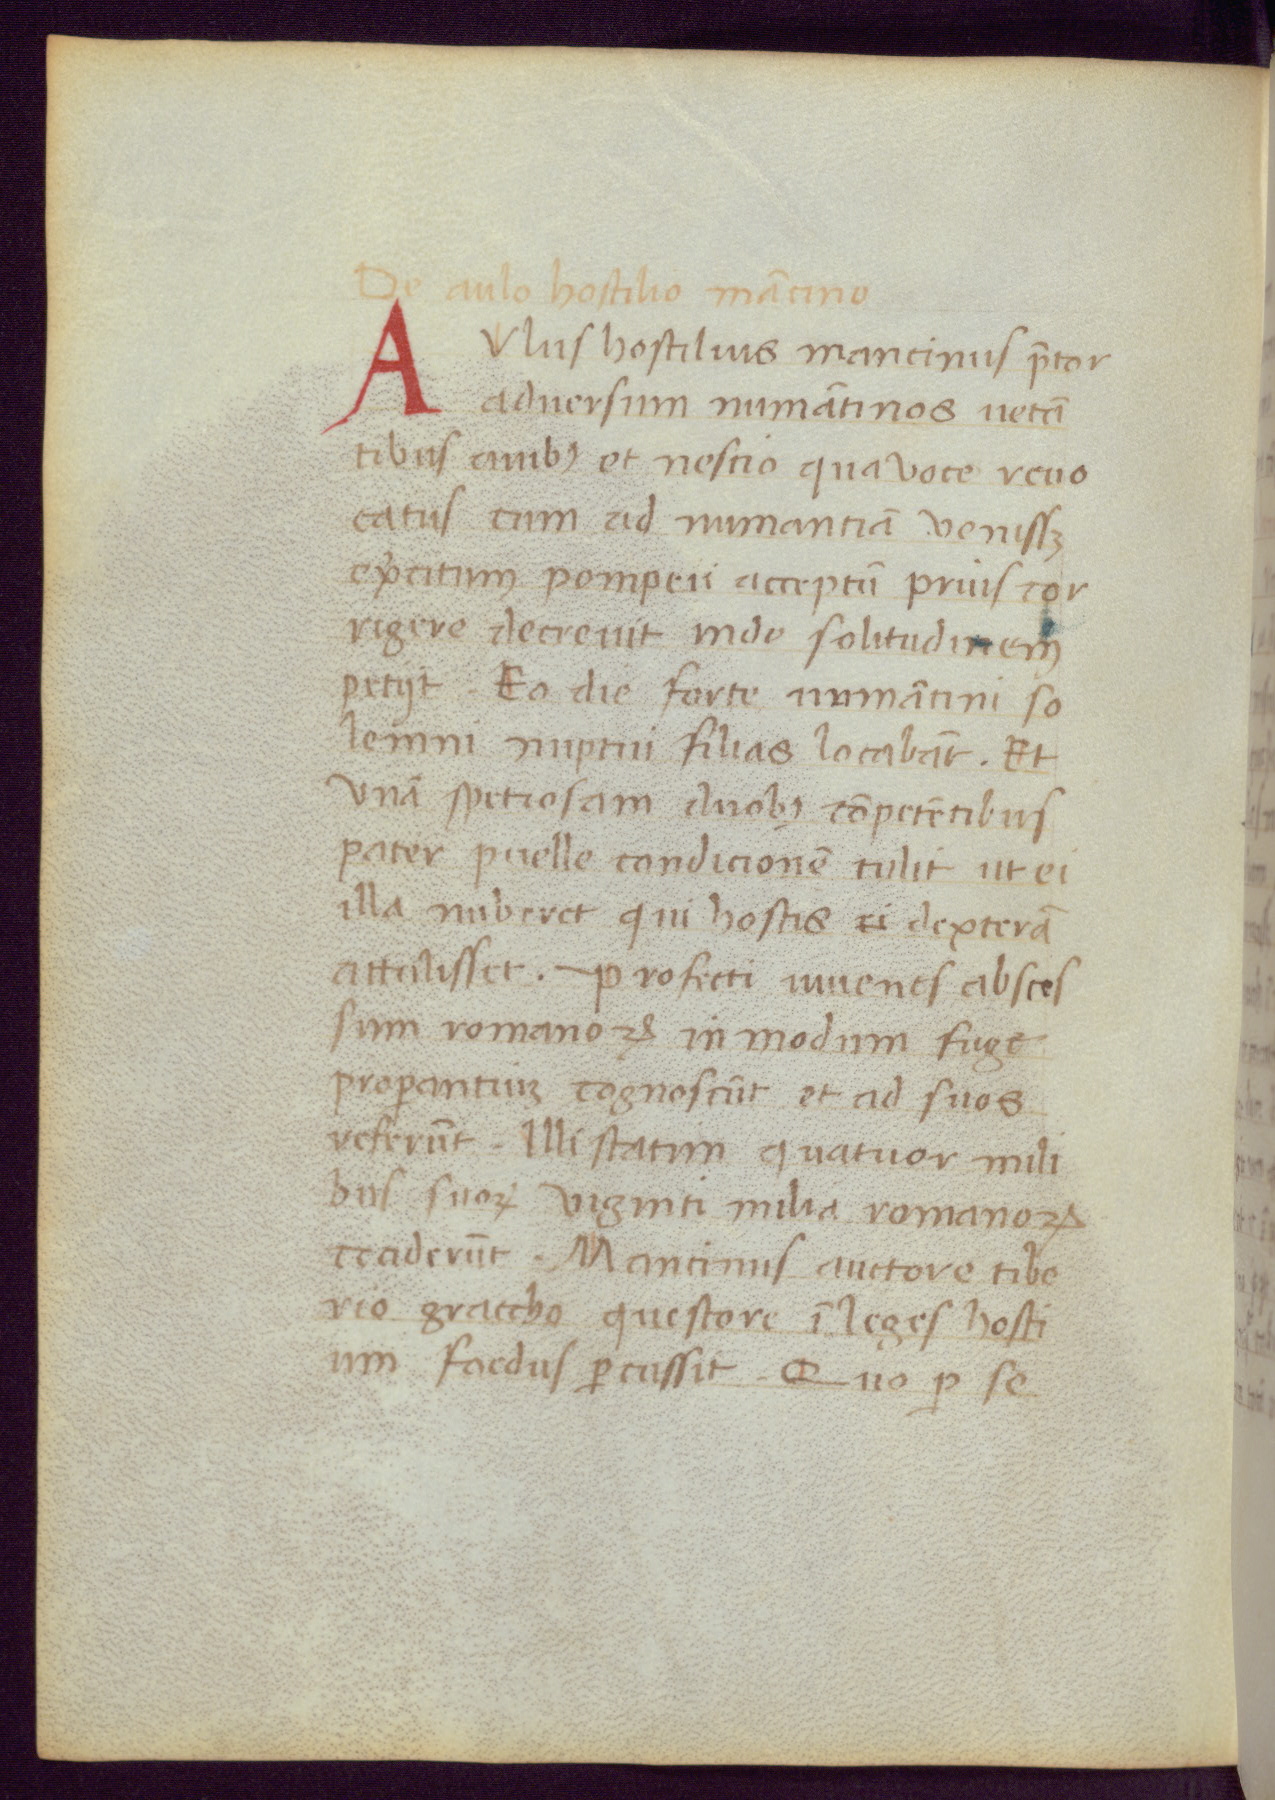 De aulo hostilio mãcino
AVlus hostilius mancinus p̃tor
aduersum numãtinos uetã
tibus auibꝫ et nescio qua voce reuo
catus cum ad numantiã venissꝫ
exꝰcitum pompeii acceptũ prius cor
rigere decreuit inde solitudinem
petijt . Eo die forte numãtini so
lemni nuptui filias locabãt . Et
vnã spetiosam duobꝫ cõpetẽtibus
pater puelle condicionẽ tulit ut ei
illa nuberet qui hostis ei dexterã
attulisset . profecti iuuenes absces
sum romanoꝝ in modum fuge
proꝑantium cognoscũt et ad suos
referũt . Illi statim quatuor mili
bus suoꝝ viginti milia romanoꝝ
ceciderũt . Mancinus auctore tibe
rio graccho questore ĩ leges hosti
um foedus ꝑcussit . Quo ꝑ se